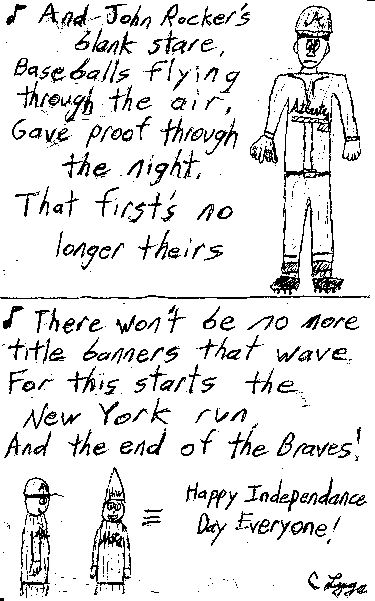 ♪ And John Rocker's
blank stare,
Baseballs flying
through the air,
Gave proof through
the night,
That first's no
longer theirs
A
Atlanta
♪ There won't be no more
title banners that wave
For this starts the
New York run,
And the end of the Braves!
Happy Independance
Day Everyone!